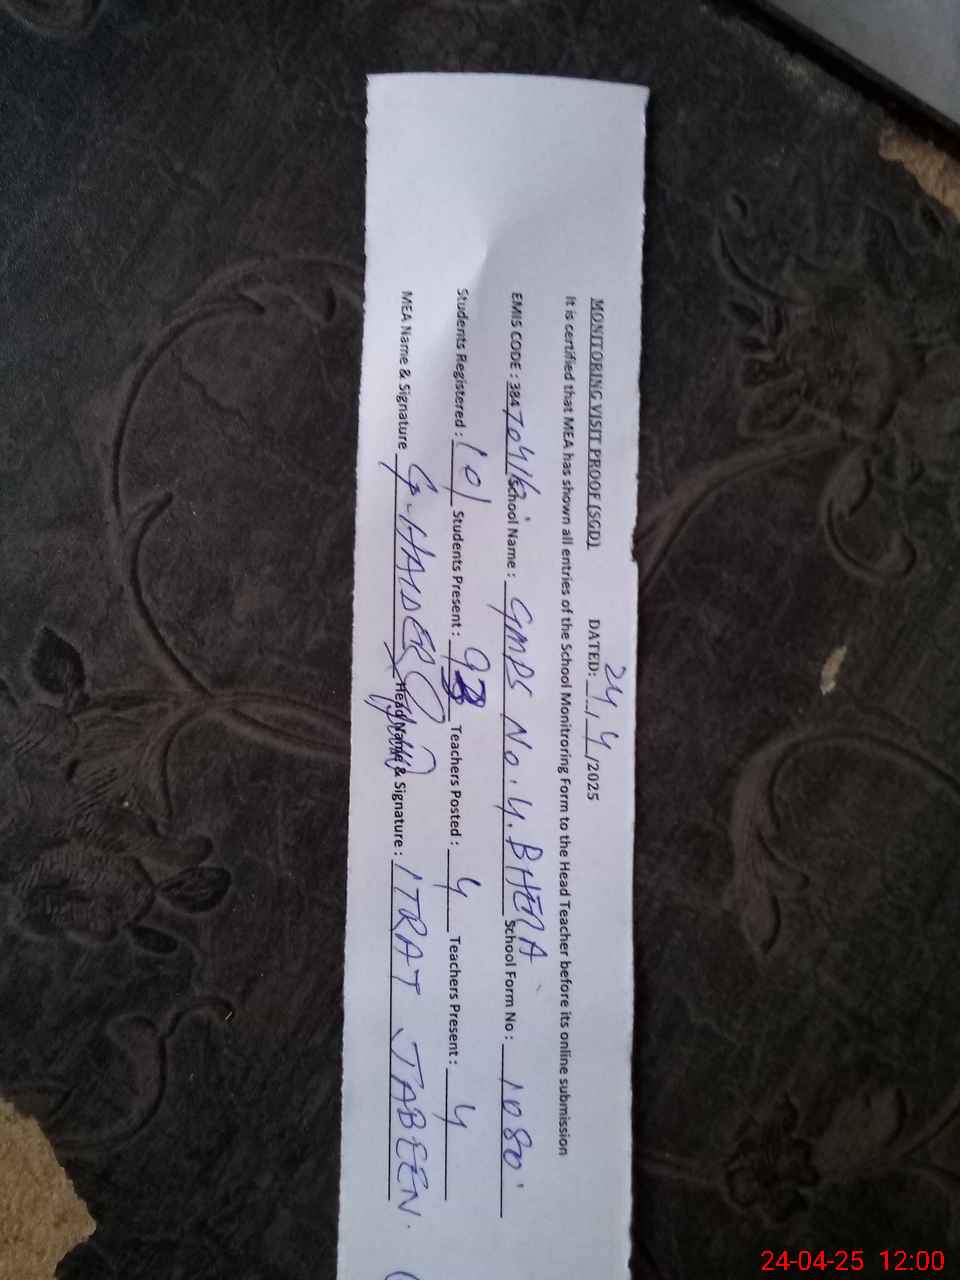 MONITORING VISIT PROOF (SGD) DATED: 24/4/2025
It is certified that MEA has shown all entries of the School Monitroring Form to the Head Teacher before its online submission
EMIS CODE : 38470416 School Name : GMPS No. 4. BHERA School Form No : 1080
Students Registered : 101 Students Present : 93 Teachers Posted : 4 Teachers Present : 4
MEA Name & Signature G-HAIDER Head Name & Signature : ITRAT JABEEN.
24-04-25 12:00